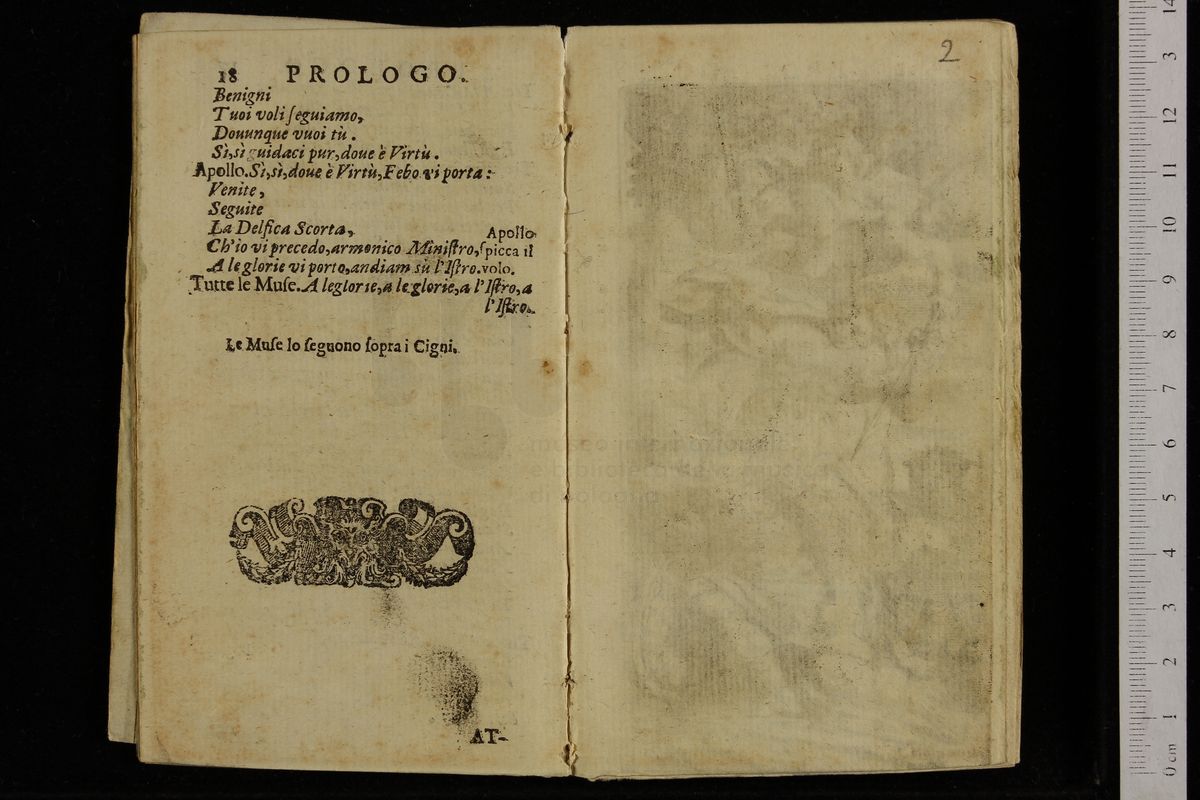 18 PROLOGO.
Benigni
Tuoi voli ſeguiamo,
Douunque vuoi tù.
Sì, sì guidaci pur, doue è Virtù.
Apollo. Sì, sì, doue è Virtù, Febo vi porta:
Venite,
Seguite
La Delfica Scorta,
Ch'io vi precedo, armonico Miniſtro,
A le glorie vi porto, andiam sù l'Iſtro.
Apollo
ſpicca il
volo.
Tutte le Muſe. A le glorie, a le glorie, a l'Iſtro, a
l'Iſtro.
Le Muſe lo ſeguono ſopra i Cigni.
AT-
2
museo internazionale
e biblioteca della musica
di bologna
0 cm 1 2 3 4 5 6 7 8 9 10 11 12 3 14